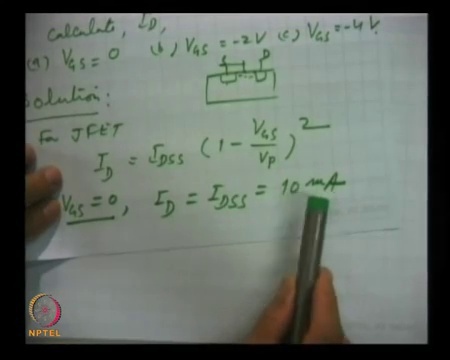 Calculate, I_D,
(a) V_GS = 0 (b) V_GS = -2V (c) V_GS = -4V.
S D
Solution:
For JFET
I_D = I_DSS (1 - V_GS/V_P)^2
V_GS = 0, I_D = I_DSS = 10 mA
NPTEL